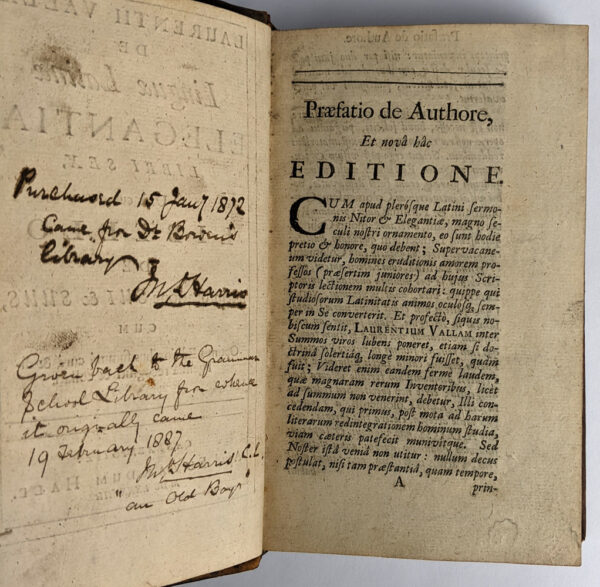 Purchased 15 Jany 1872
Came from Dr Bowen's
library
Harris
Given back to the Grammar
School Library from whence
it originally came
19 February 1887
Harris C.E.
"an Old Boy"
Præfatio de Authore,
Et novâ hâc
EDITIONE.
CUM apud plerósque Latini sermo-
nis Nitor & Elegantiæ, magno se-
culi nostri ornamento, eo sunt hodie
pretio & honore, quo debent; Supervacane-
um videtur, homines eruditionis amorem pro-
fessos (præsertim juniores) ad hujus Scri-
ptoris lectionem multis cohortari: quippe qui
studiosorum Latinitatis animos oculosq, sem-
per in Se converterit. Et profectò, siquis no-
biscum sentit, LAURENTIUM VALLAM inter
Summos viros lubens poneret, etiam si do-
ctrinâ solertiâq, longè minori fuisset, quàm
fuit; Videret enim eandem fermè laudem,
quæ magnarum rerum Inventoribus, licèt
ad summum non venerint, debetur, Illi con-
cedendam, qui primus, post mota ad harum
literarum redintegrationem hominum studia,
viam cæteris patefecit munivitque. Sed
Noster istâ veniâ non utitur: nullum decus
postulat, nisi tam præstantiâ, quam tempore,
A
prin-